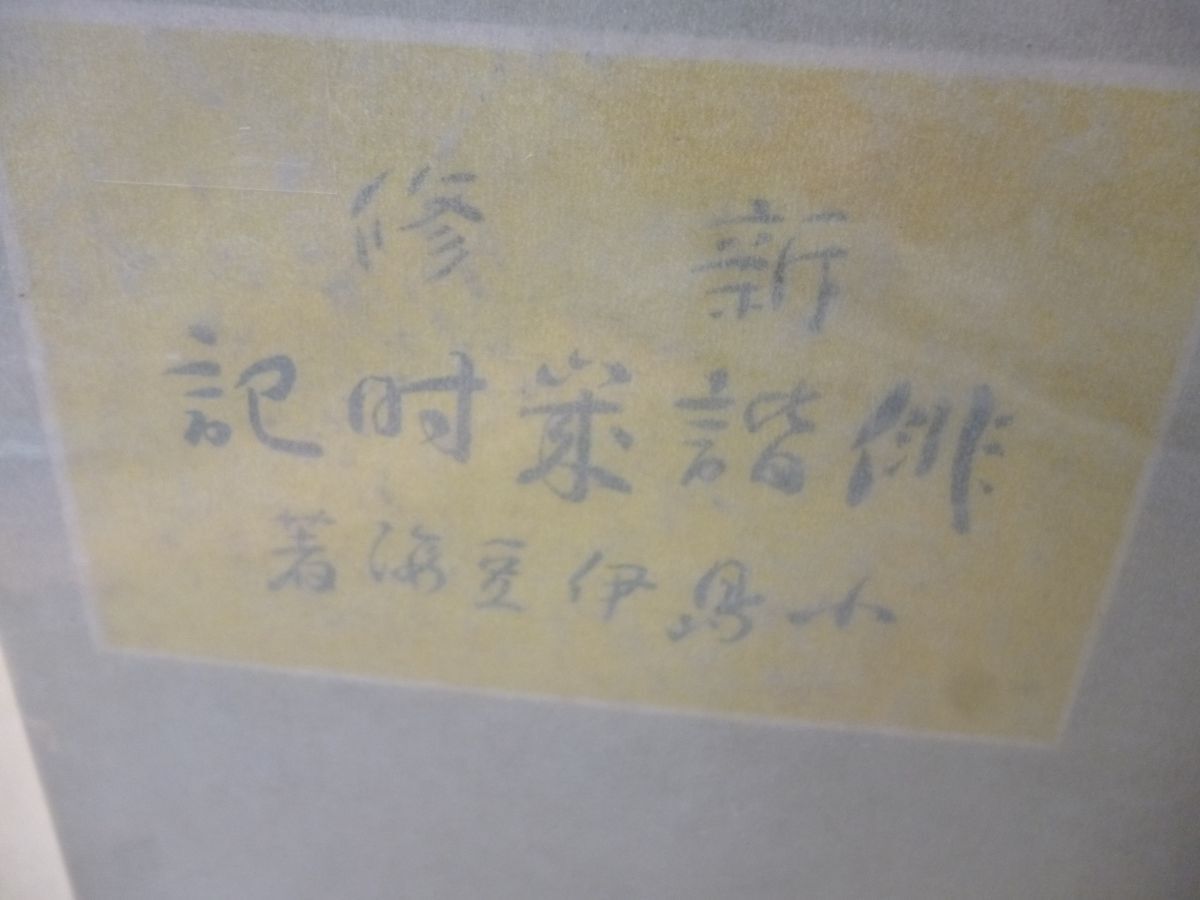 新修
俳諧歳時記
小島伊豆海著